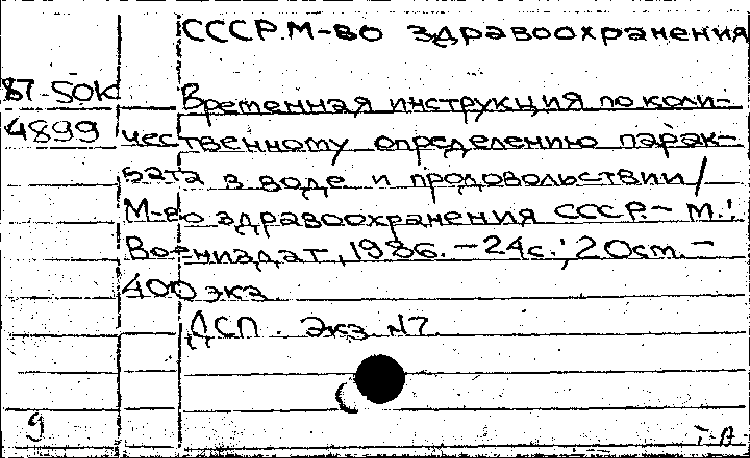 СССР. М-во здравоохранения
87-50К
Временная инструкция по коли-
4899 чественному определению парак-
вата в воде и продовольствии /
М-во здравоохранения СССР. - М.:
Воениздат, 1986. - 24с.; 20см. -
400 экз
ДСП. Экз. N7.
9
Т-А